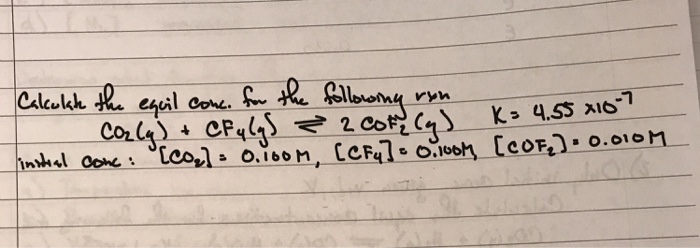 Calculate the equil conc. for the following rxn
CO₂(g) + CF₄(g) ⇌ 2 COF₂(g) K = 4.55 x10⁻⁷
initial conc : [CO₂] = 0.100M, [CF₄] = 0.100M, [COF₂] = 0.010M